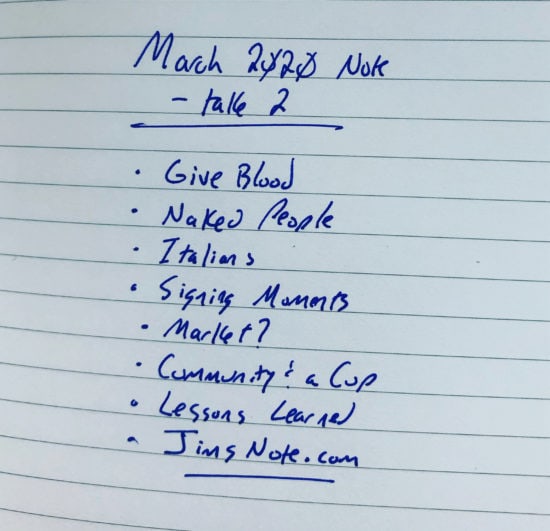 March 2020 Note
- take 2
• Give Blood
• Naked People
• Italians
• Signing Moments
• Market?
• Community & a Cup
• Lessons Learned
• JimsNote.com